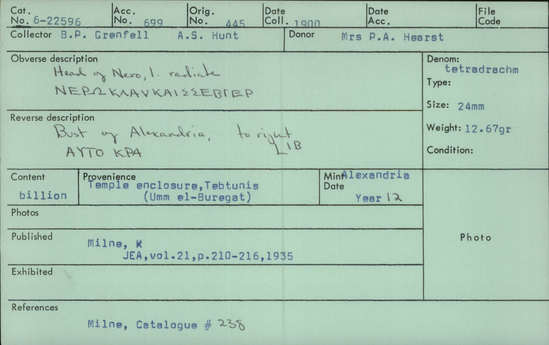 Cat. No. 6-22596 Acc. No. 699 Orig. No. 445 Date Coll. 1900 Date Acc. File Code
Collector B.P. Grenfell A.S. Hunt Donor Mrs P.A. Hearst
Obverse description
Head of Nero, l. radiate
ΝΕΡΩΚΛΑΥΚΑΙΣΣΕΒΓΕΡ
Denom: tetradrachm
Type:
Size: 24mm
Weight: 12.67gr
Condition:
Reverse description
Bust of Alexandria, to right
ΑΥΤΟ ΚΡΑ LIB
Content billion
Provenience Temple enclosure, Tebtunis
(Umm el-Buregat)
Mint Alexandria
Date Year 12
Photos
Photo
Published Milne, K
JEA,vol.21,p.210-216,1935
Exhibited
References
Milne, Catalogue # 238